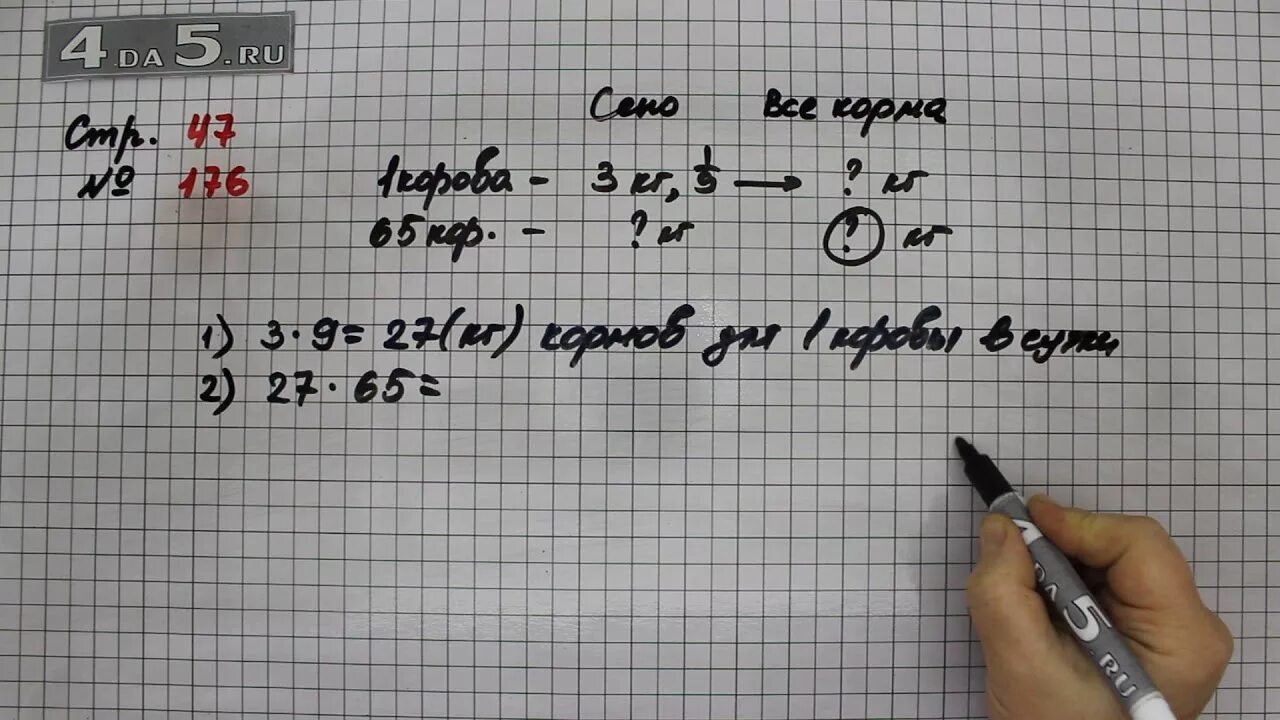 4.DA5.RU
Стр. 47
№ 176
Сено Все корма
1 корова - 3 кг, 1/9 → ? кг
65 кор. - ? кг ? кг
1) 3 · 9 = 27 (кг) кормов для 1 коровы в сутки
2) 27 · 65 =
4.DA5.RU